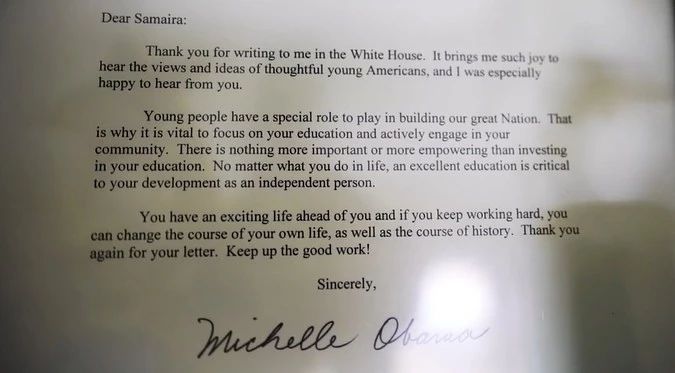 Dear Samaira:
Thank you for writing to me in the White House. It brings me such joy to
hear the views and ideas of thoughtful young Americans, and I was especially
happy to hear from you.
Young people have a special role to play in building our great Nation. That
is why it is vital to focus on your education and actively engage in your
community. There is nothing more important or more empowering than investing
in your education. No matter what you do in life, an excellent education is critical
to your development as an independent person.
You have an exciting life ahead of you and if you keep working hard, you
can change the course of your own life, as well as the course of history. Thank you
again for your letter. Keep up the good work!
Sincerely,
Michelle Obama